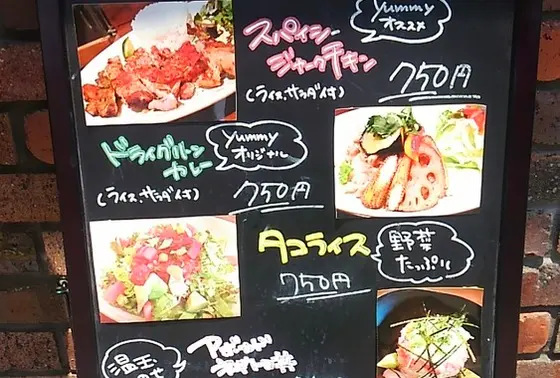 yummy
オススメ
スパイシー
ジャークチキン
(ライス、サラダ付)
750円
ドライグリーン
カレー
yummy
オリジナル
(ライス、サラダ付)
750円
タコライス
野菜
たっぷり
750円
温玉